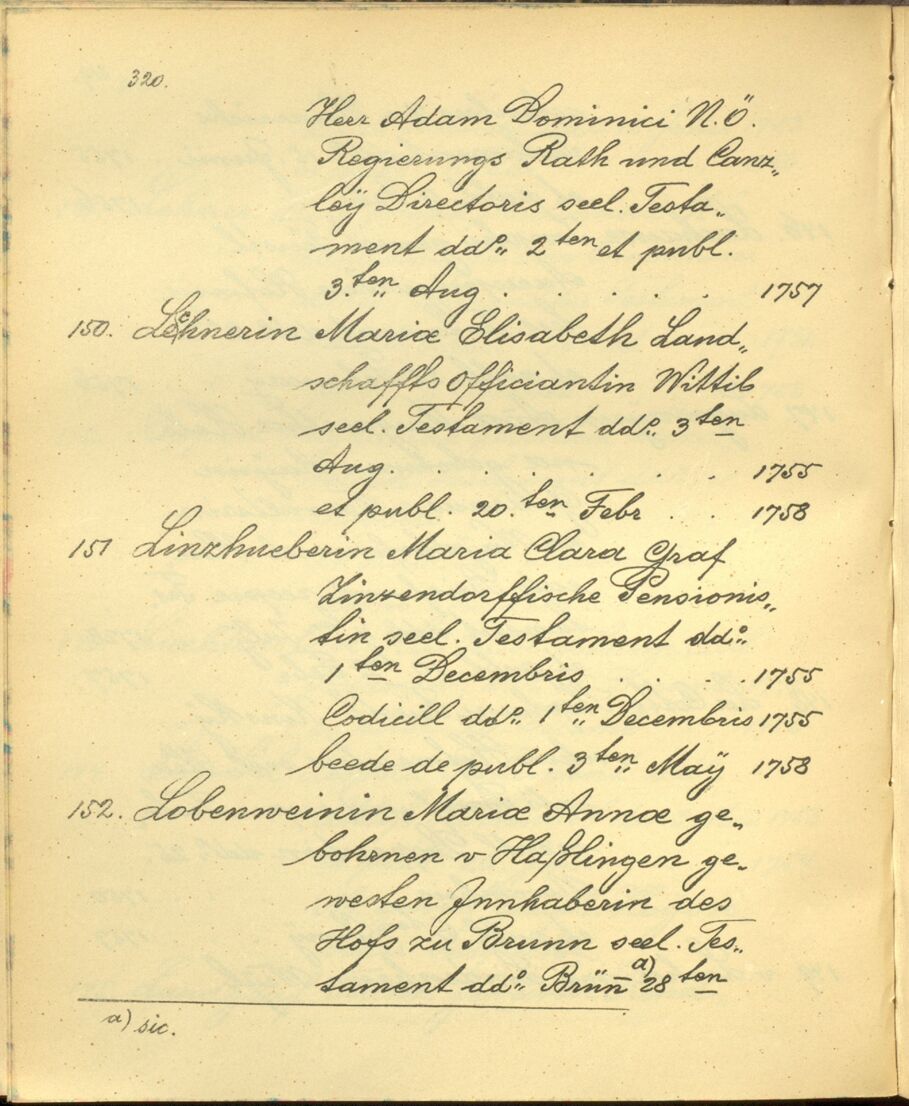 320.
Herr Adam Dominici N.Ö.
Regierungs Rath und Canz„
leÿ Directoris seel. Testa„
ment dd°: 2ten et publ.
3.ten Aug . . . . . . 1757
150. Lechnerin Mariæ Elisabeth Land„
schaffts Officiantin Wittib
seel. Testament dd°: 3ten
Aug. . . . . . . 1755
et publ. 20.ten Febr . . 1758
151 Linzhueberin Maria Clara Graf
Zinzendorffische Pensionis„
tin seel. Testament dd°:
1ten Decembris . . . . 1755
Codicill dd°: 1ten Decembris 1755
beede de publ. 3ten Maÿ 1758
152. Lobenweinin Mariæ Annæ ge„
bohrnen v Haßlingen ge„
westen Jnnhaberin des
Hofs zu Brunn seel. Tes„
tament dd°: Brün̅ a) 28ten
a) sic.